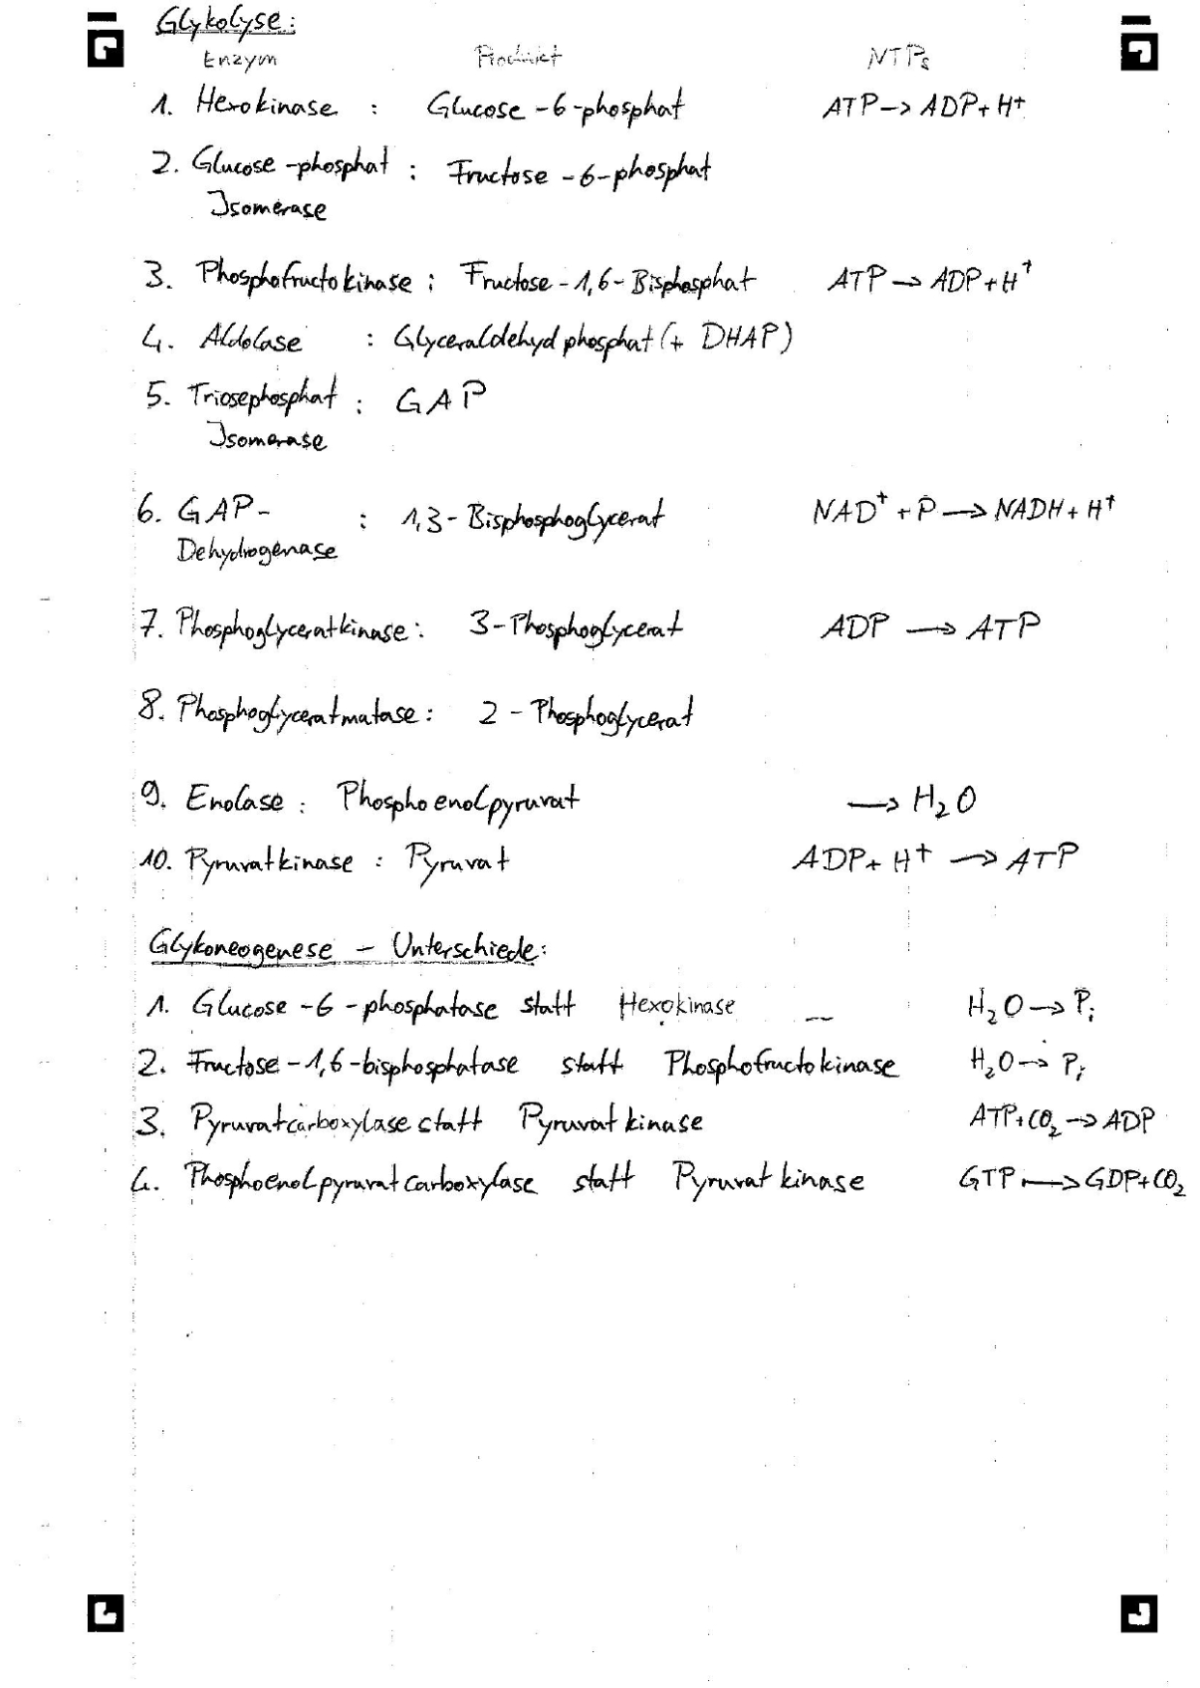 Glykolyse:
Enzym Produkt NTPs
1. Hexokinase : Glucose-6-phosphat ATP → ADP + H⁺
2. Glucose-phosphat : Fructose-6-phosphat
Isomerase
3. Phosphofructokinase : Fructose-1,6-Bisphosphat ATP → ADP + H⁺
4. Aldolase : Glyceraldehydphosphat (+ DHAP)
5. Triosephosphat : GAP
Isomerase
6. GAP- : 1,3-Bisphosphoglycerat NAD⁺ + P → NADH + H⁺
Dehydrogenase
7. Phosphoglyceratkinase : 3-Phosphoglycerat ADP → ATP
8. Phosphoglyceratmatase : 2-Phosphoglycerat
9. Enolase : Phosphoenolpyruvat → H₂O
10. Pyruvatkinase : Pyruvat ADP + H⁺ → ATP
Glykoneogenese – Unterschiede:
1. Glucose-6-phosphatase statt Hexokinase H₂O → Pᵢ
2. Fructose-1,6-bisphosphatase statt Phosphofructokinase H₂O → Pᵢ
3. Pyruvatcarboxylase statt Pyruvatkinase ATP + CO₂ → ADP
4. Phosphoenolpyruvatcarboxylase statt Pyruvatkinase GTP → GDP + CO₂